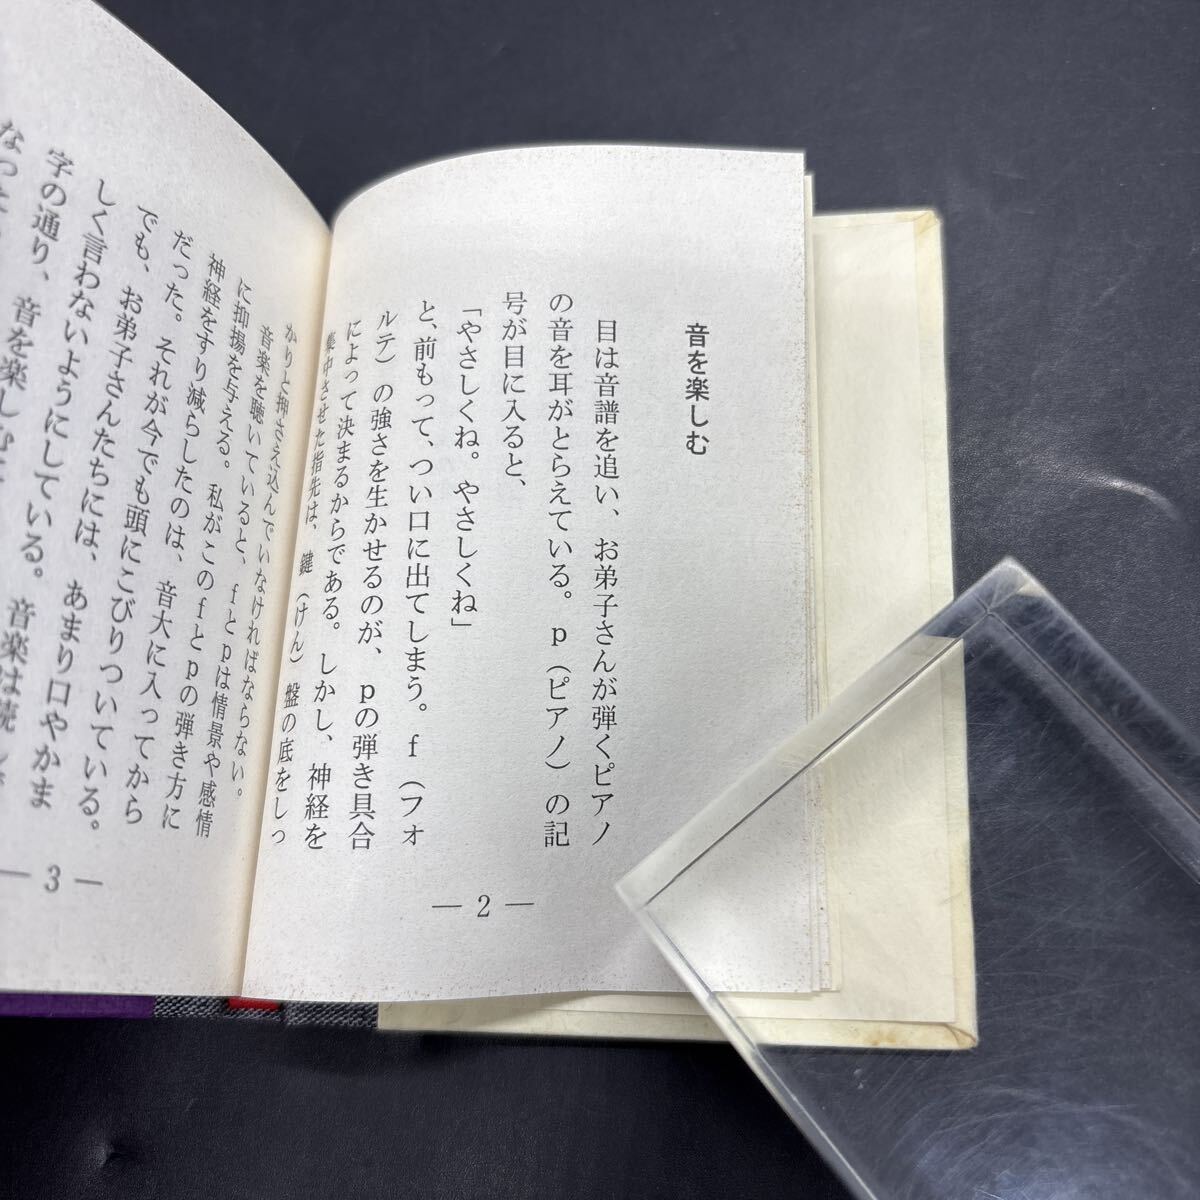 音を楽しむ
目は音譜を追い、お弟子さんが弾くピアノ
の音を耳がとらえている。p（ピアノ）の記
号が目に入ると、
「やさしくね。やさしくね」
と、前もって、つい口に出てしまう。f（フォ
ルテ）の強さを生かせるのが、pの弾き具合
によって決まるからである。しかし、神経を
集中させた指先は、鍵（けん）盤の底をしっ
— 2 —
かりと押さえ込んでいなければならない。
音楽を聴いていると、fとpは情景や感情
に抑揚を与える。私がこのfとpの弾き方に
神経をすり減らしたのは、音大に入ってから
だった。それが今でも頭にこびりついている。
でも、お弟子さんたちには、あまり口やかま
しく言わないようにしている。音楽は
字の通り、音を楽しむ
なった
— 3 —